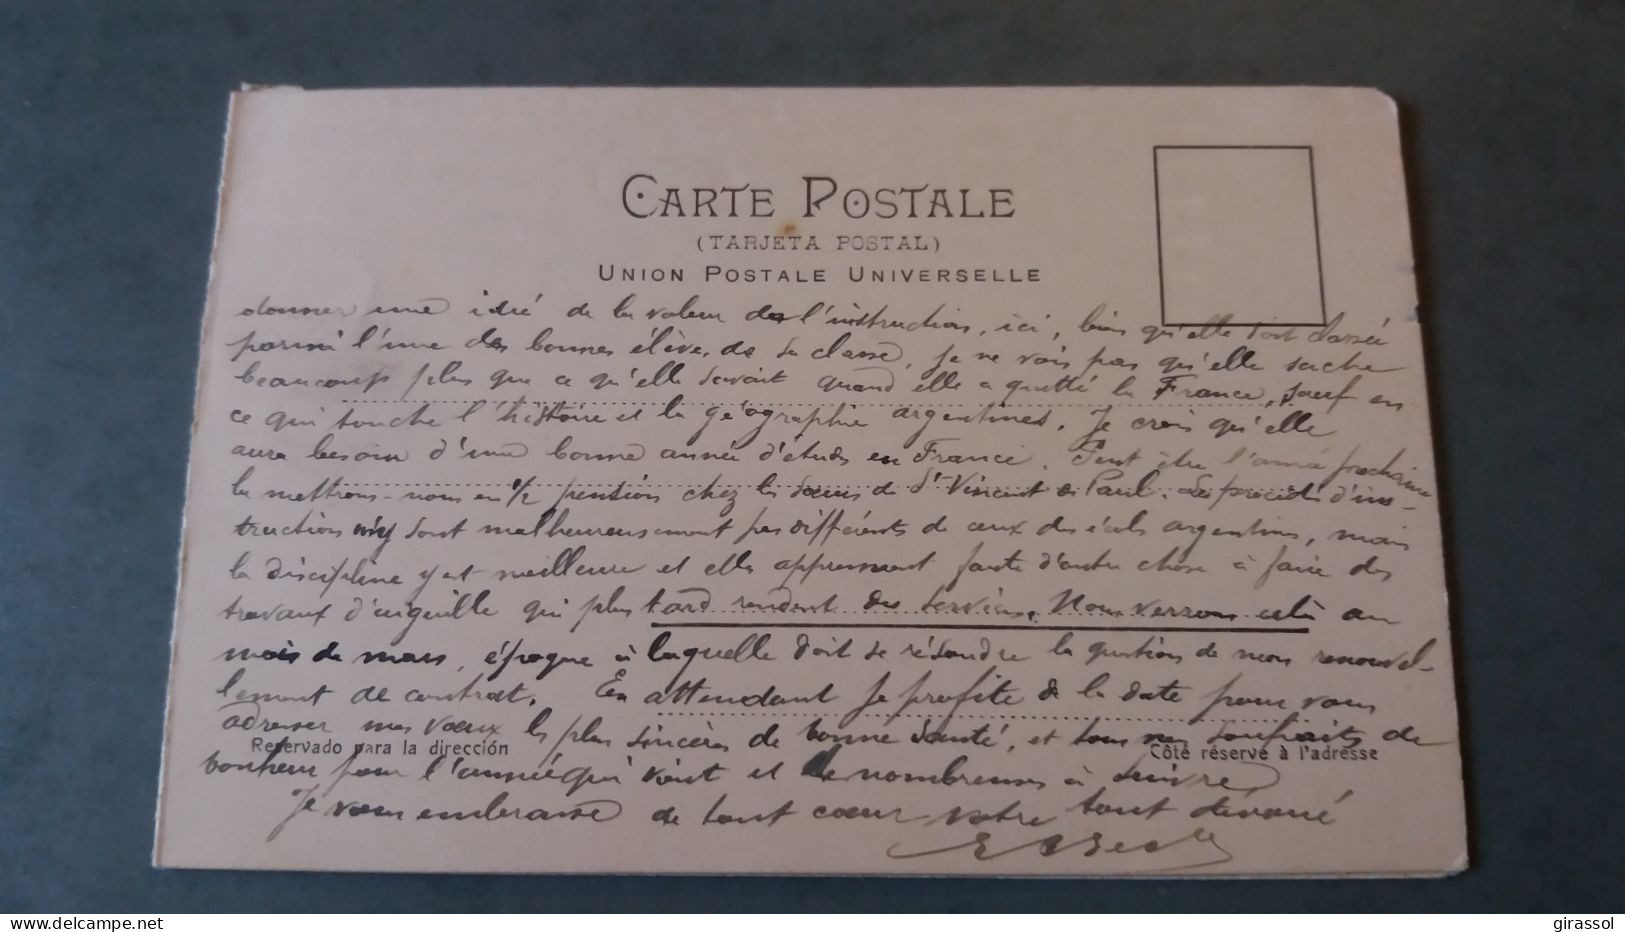 CARTE POSTALE
(TARJETA POSTAL)
UNION POSTALE UNIVERSELLE
donner une idée de la valeur de l'instruction, ici, bien qu'elle soit classée
parmi l'une des bonnes élèves de sa classe, je ne vois pas qu'elle sache
beaucoup plus que ce qu'elle savait quand elle a quitté la France, sauf en
ce qui touche l'histoire et la géographie argentines. Je crois qu'elle
aura besoin d'une bonne année d'études en France. Peut être l'année prochaine
la mettrons-nous en 1/2 pension chez les sœurs de St Vincent de Paul. Les procédés d'ins-
truction y sont malheureusement pas différents de ceux des écoles argentines, mais
la discipline y est meilleure et elles apprennent faute d'autre chose à faire des
travaux d'aiguille qui plus tard rendent des services. Nous verrons cela au
mois de mars, époque à laquelle doit se résoudre la question de mon renouvel-
lement de contrat. En attendant je profite de la date pour vous
adresser mes vœux les plus sincères de bonne santé, et tous mes souhaits de
Reservado para la dirección
Côté réservé à l'adresse
bonheur pour l'année qui vient et de nombreuses à suivre
Je vous embrasse de tout cœur votre tout dévoué
www.delcampe.net
girassol